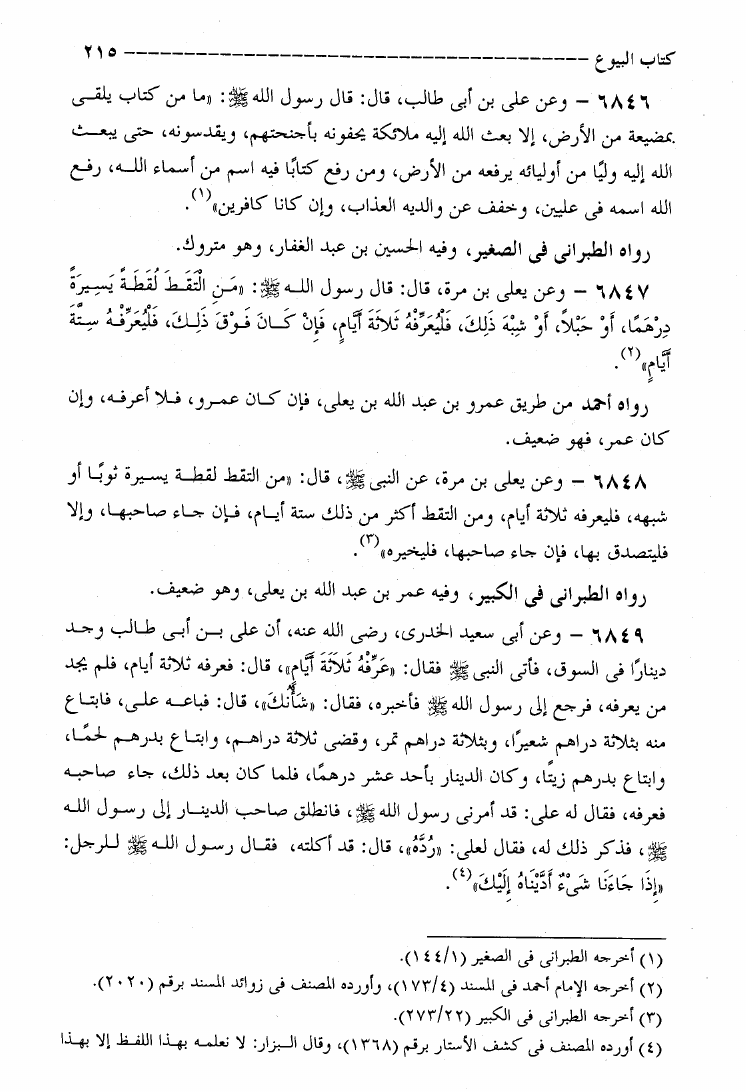 كتاب البيوع ــــــــــــــــــــــــــــــــــــــــ ٢١٥
٦٨٤٦ – وعن على بن أبى طالب، قال: قال رسول الله ﷺ: «ما من كتاب يلقى
بمضيعة من الأرض، إلا بعث الله إليه ملائكة يحفونه بأجنحتهم، ويقدسونه، حتى يبعث
الله إليه وليًا من أوليائه يرفعه من الأرض، ومن رفع كتابًا فيه اسم من أسماء الله، رفع
الله اسمه فى عليين، وخفف عن والديه العذاب، وإن كانا كافرين»(١).
رواه الطبرانى فى الصغير، وفيه الحسين بن عبد الغفار، وهو متروك.
٦٨٤٧ – وعن يعلى بن مرة، قال: قال رسول الله ﷺ: «مَنِ الْتَقَطَ لُقَطَةً يَسِيرَةً
دِرْهَمًا، أَوْ حَبْلاً، أَوْ شِبْهَ ذَلِكَ، فَلْيُعَرِّفْهُ ثَلاثَةَ أَيَّامٍ، فَإِنْ كَانَ فَوْقَ ذَلِكَ، فَلْيُعَرِّفْهُ سِتَّةَ
أَيَّامٍ»(٢).
رواه أحمد من طريق عمرو بن عبد الله بن يعلى، فإن كان عمرو، فلا أعرفه، وإن
كان عمر، فهو ضعيف.
٦٨٤٨ – وعن يعلى بن مرة، عن النبى ﷺ، قال: «من التقط لقطة يسيرة ثوبًا أو
شبهه، فليعرفه ثلاثة أيام، ومن التقط أكثر من ذلك ستة أيام، فإن جاء صاحبها، وإلا
فليتصدق بها، فإن جاء صاحبها، فليخيره»(٣).
رواه الطبرانى فى الكبير، وفيه عمر بن عبد الله بن يعلى، وهو ضعيف.
٦٨٤٩ – وعن أبى سعيد الخدرى، رضى الله عنه، أن على بن أبى طالب وجد
دينارًا فى السوق، فأتى النبى ﷺ فقال: «عَرِّفْهُ ثَلاثَةَ أَيَّامٍ»، قال: فعرفه ثلاثة أيام، فلم يجد
من يعرفه، فرجع إلى رسول الله ﷺ فأخبره، فقال: «شَأْنُكَ»، قال: فباعه على، فابتاع
منه بثلاثة دراهم شعيرًا، وبثلاثة دراهم تمر، وقضى ثلاثة دراهم، وابتاع بدرهم لحمًا،
وابتاع بدرهم زيتًا، وكان الدينار بأحد عشر درهمًا، فلما كان بعد ذلك، جاء صاحبه
فعرفه، فقال له على: قد أمرنى رسول الله ﷺ، فانطلق صاحب الدينار إلى رسول الله
ﷺ، فذكر ذلك له، فقال لعلى: «رُدَّهُ»، قال: قد أكلته، فقال رسول الله ﷺ للرجل:
«إِذَا جَاءَنَا شَىْءٌ أَدَّيْنَاهُ إِلَيْكَ»(٤).
(١) أخرجه الطبرانى فى الصغير (١/١٤٤).
(٢) أخرجه الإمام أحمد فى المسند (٤/١٧٣)، وأورده المصنف فى زوائد المسند برقم (٢٠٢٠).
(٣) أخرجه الطبرانى فى الكبير (٢٢/٢٧٣).
(٤) أورده المصنف فى كشف الأستار برقم (١٣٦٨)، وقال البزار: لا نعلمه بهذا اللفظ إلا بهذا